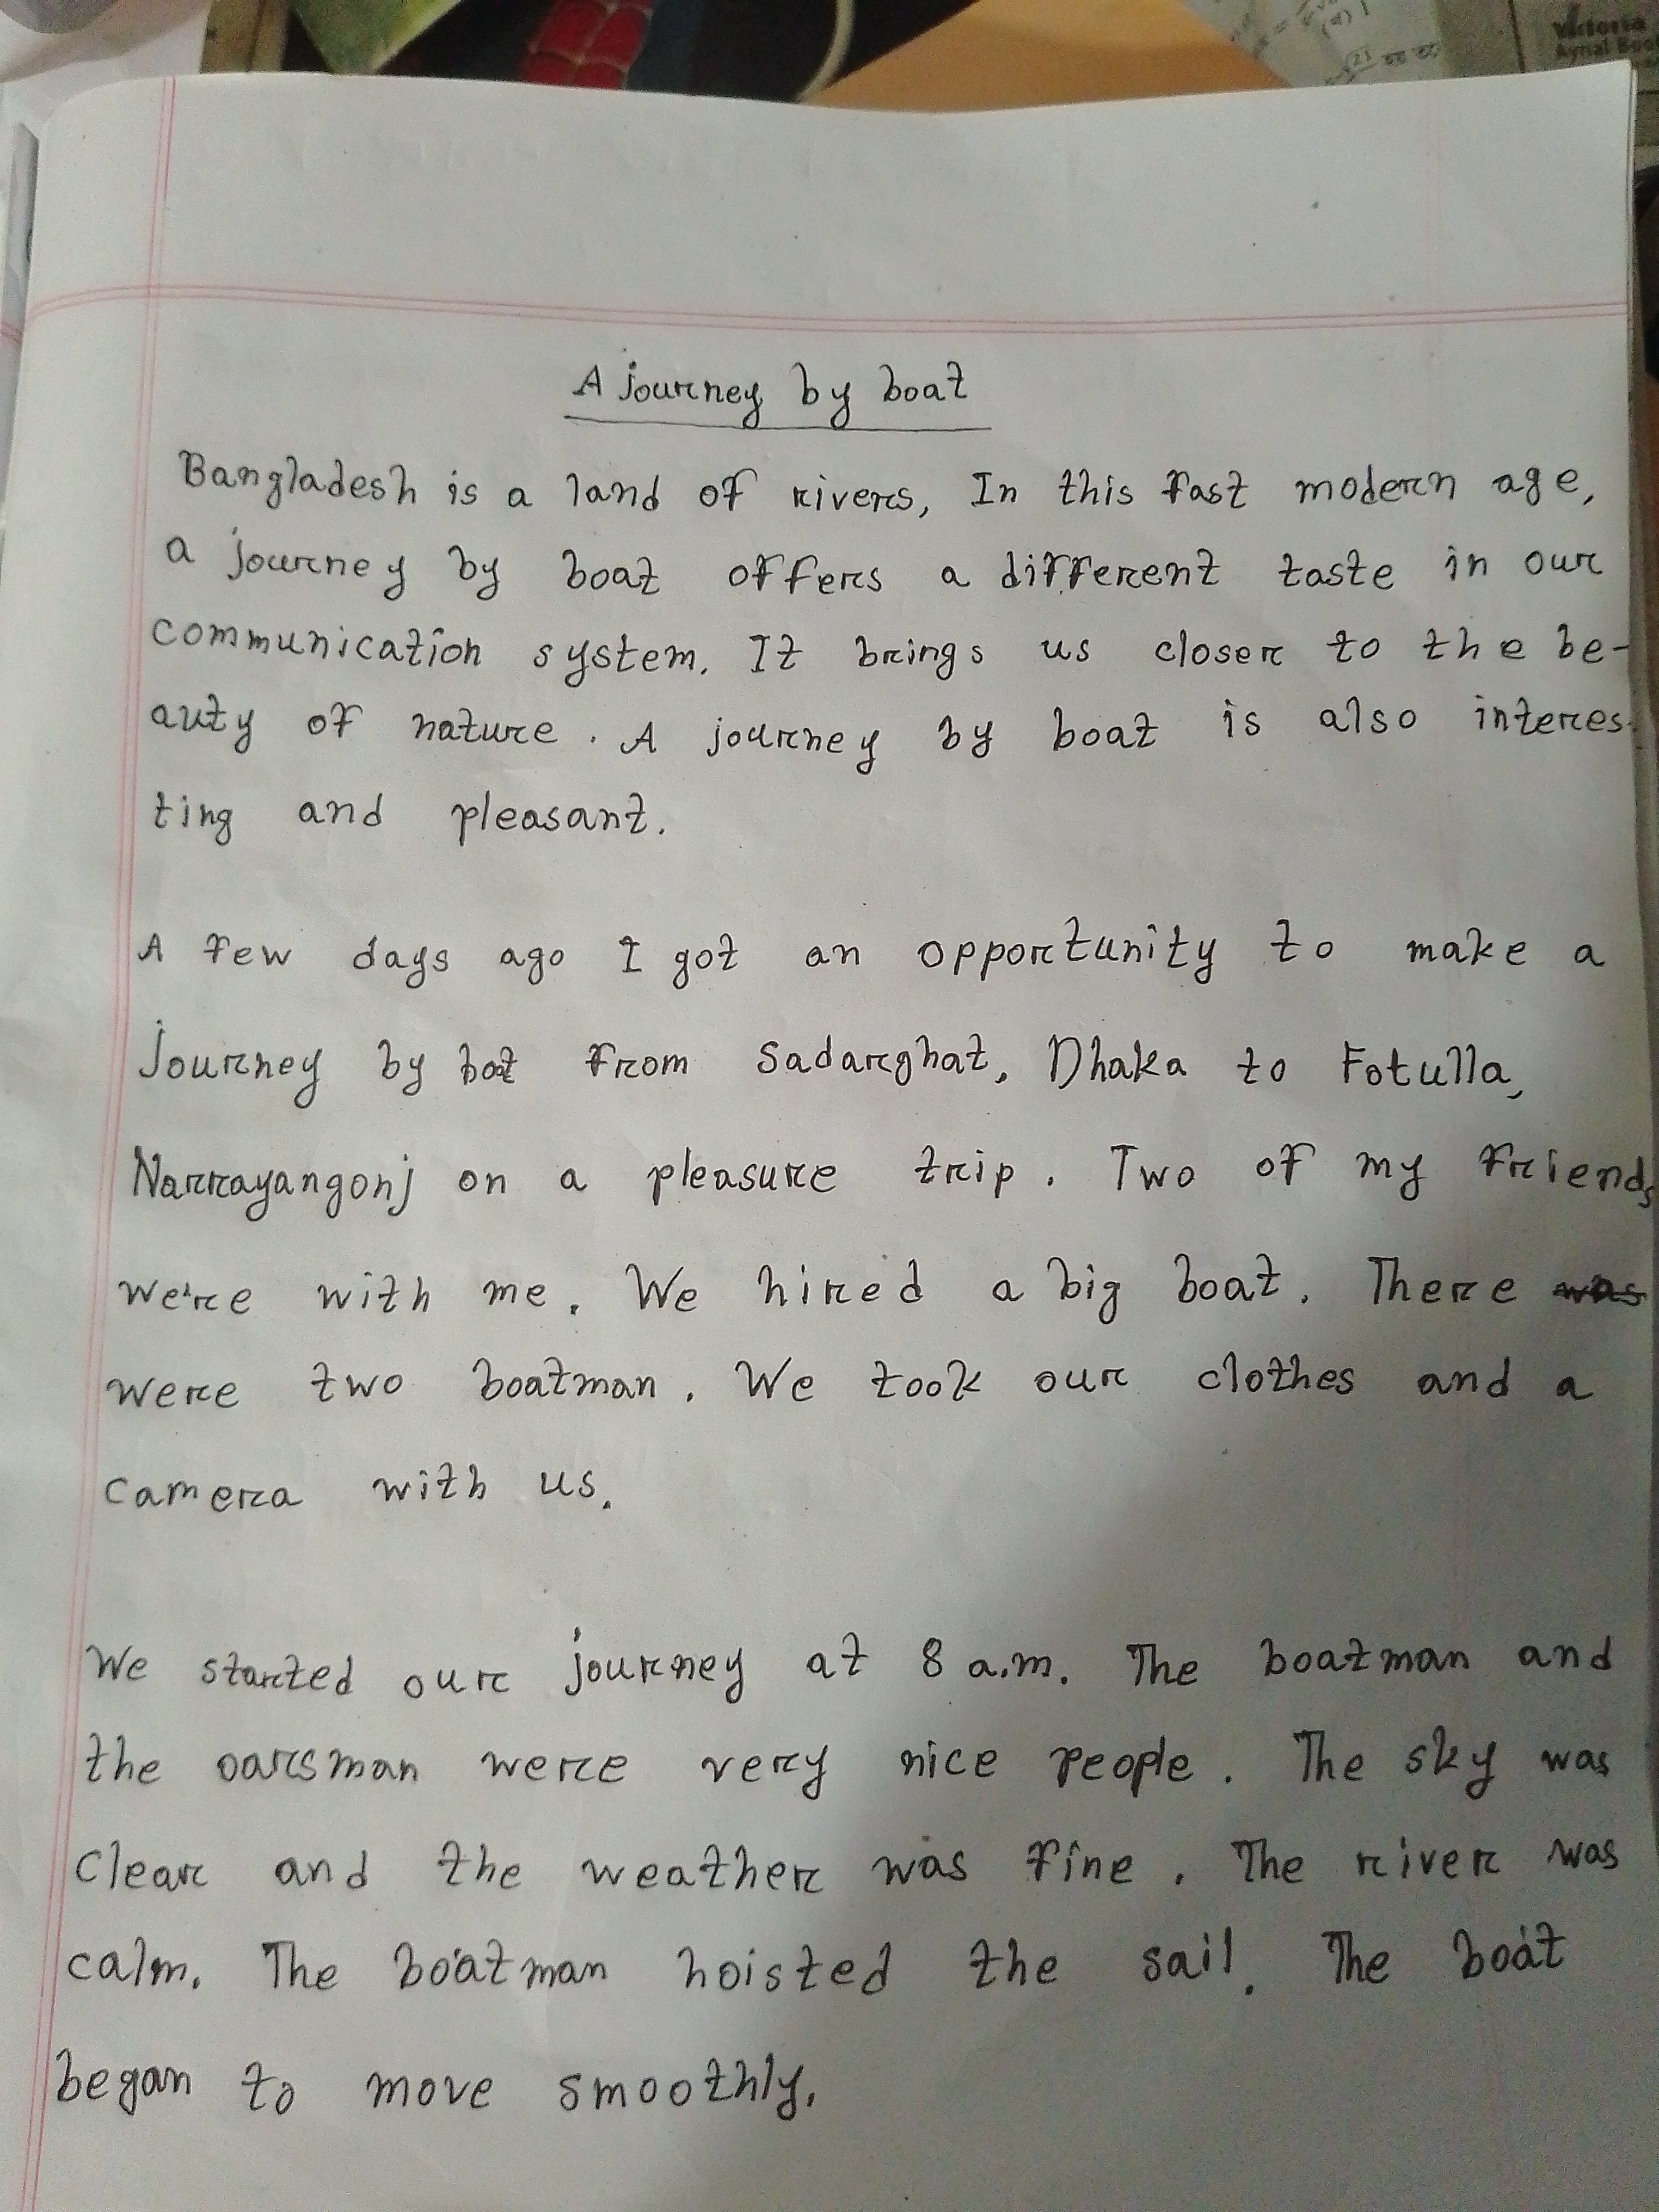 Victoria
A journey by boat
Bangladesh is a land of rivers, In this fast modern age,
a journey by boat offers a different taste in our
communication system. It brings us closer to the be-
auty of nature. A journey by boat is also interes-
ting and pleasant.
A few days ago I got an opportunity to make a
Journey by bot from Sadarghat, Dhaka to Fotulla,
Narrayangonj on a pleasure trip. Two of my friends
were with me. We hired a big boat. There was
were two boatman. We took our clothes and a
camera with us.
We started our journey at 8 a.m. The boatman and
the oarsman were very nice people. The sky was
clear and the weather was fine. The river was
calm. The boatman hoisted the sail. The boat
began to move smoothly.